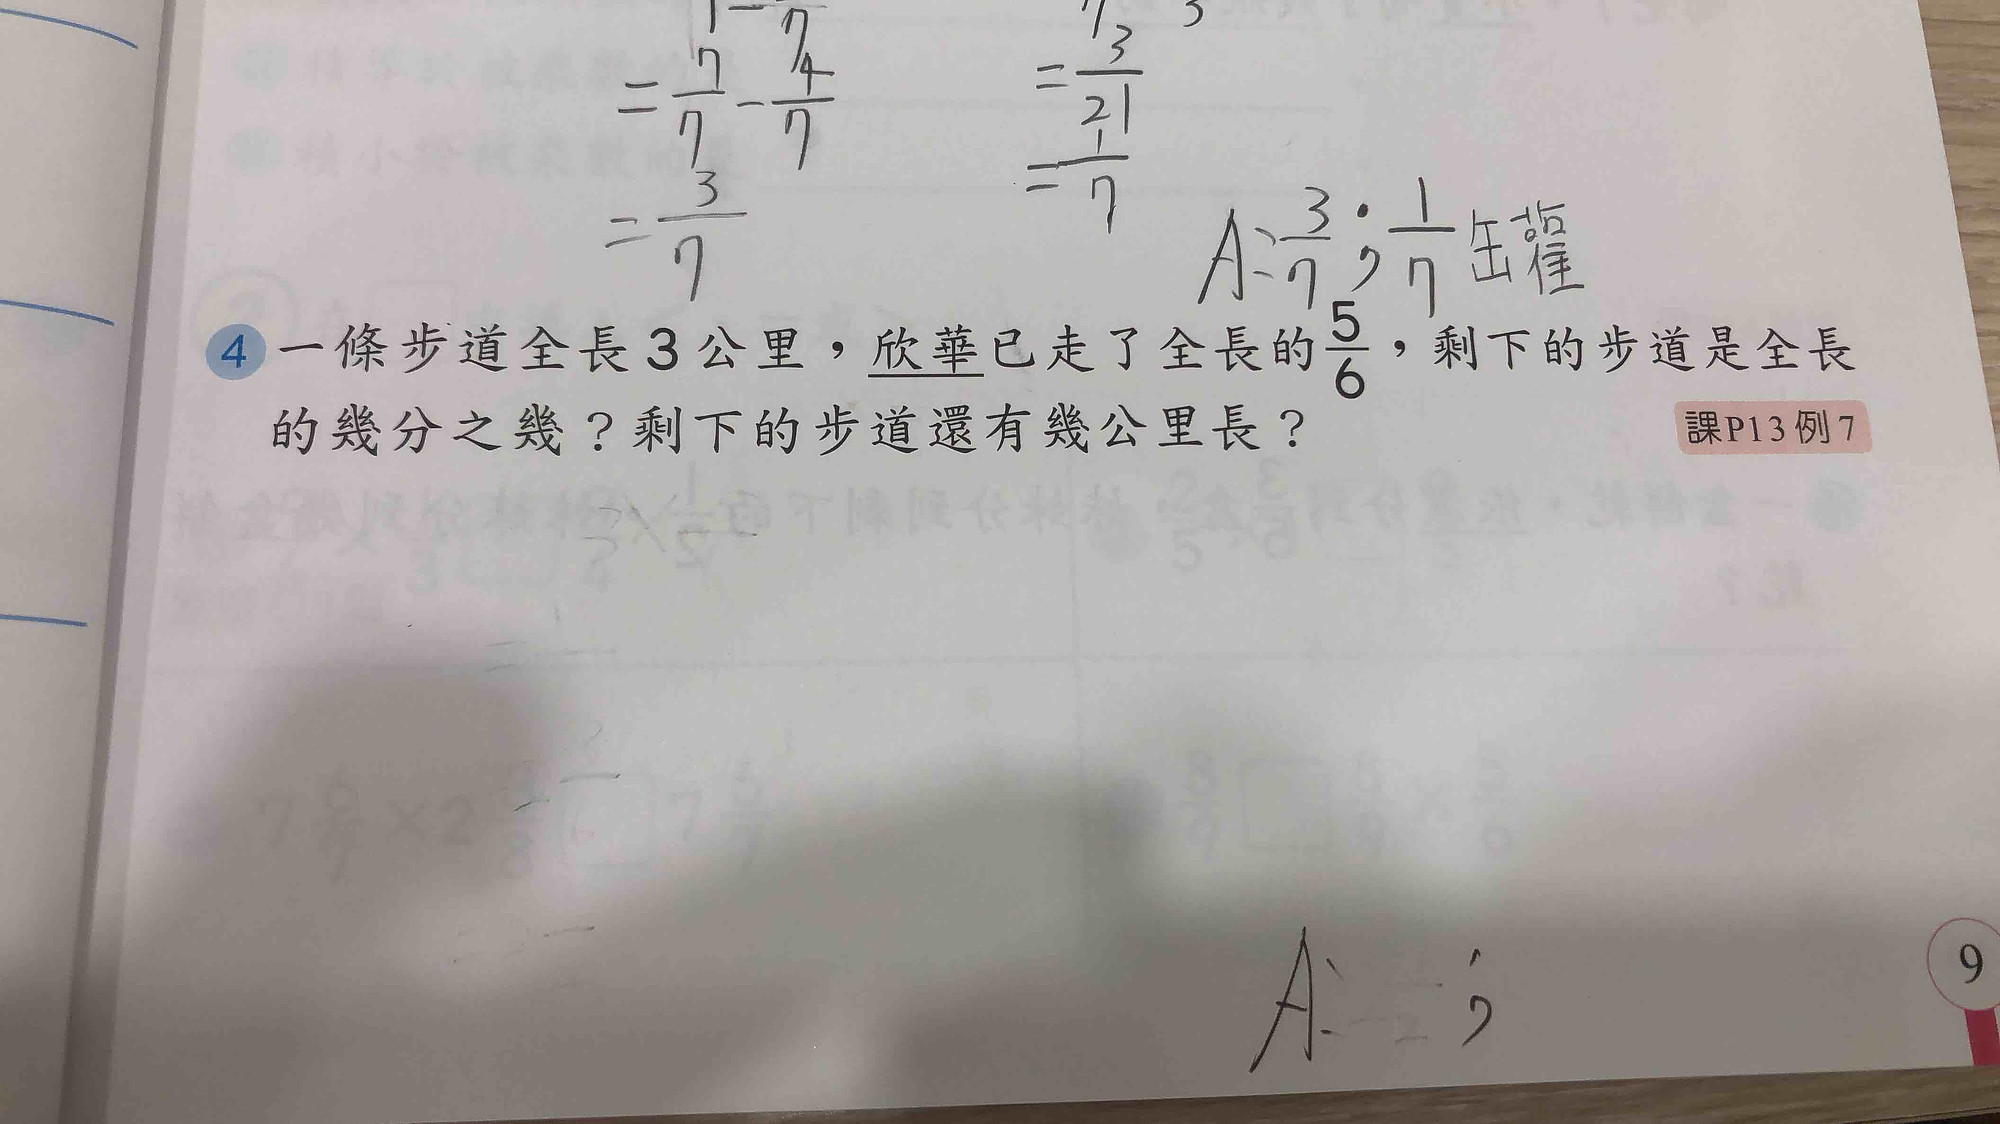 = 7/7 - 4/7
= 3/7
= 3/21
= 1/7
A: 3/7 ; 1/7 罐
4 一條步道全長3公里，欣華已走了全長的5/6，剩下的步道是全長
的幾分之幾？剩下的步道還有幾公里長？
課P13例7
A: ;
9